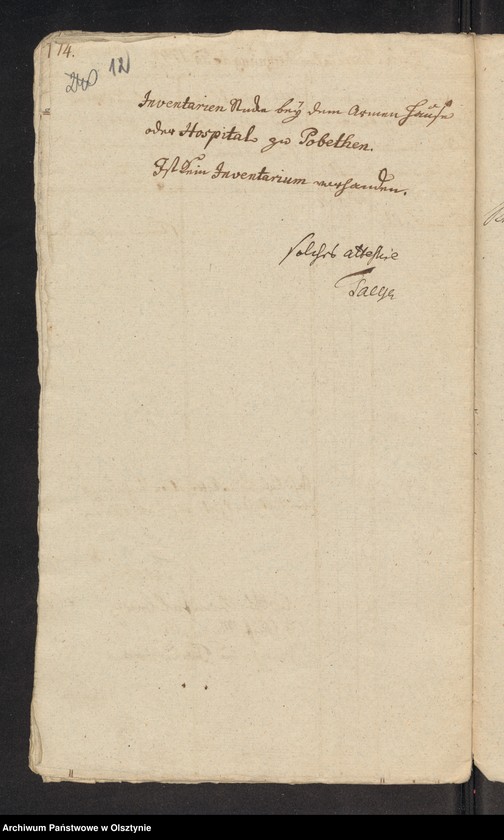 174.
12
Inventarien Stücke bey dem Armen Hause
oder Hospital zu Pobethen.
Ist kein Inventarium vorhanden.
solches attestire
Archiwum Państwowe w Olsztynie